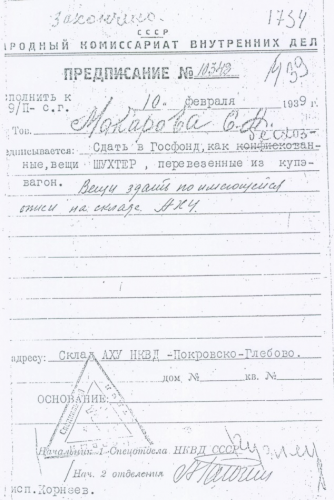 закончено.
1734
СССР
АРОДНЫЙ КОМИССАРИАТ ВНУТРЕННИХ ДЕЛ
ПРЕДПИСАНИЕ № 10342
М39
сполнить к
9/П- с.г.
10.- февраля 1939 г.
Тов. Макарова С.И.
дписывается: Сдать в Госфонд, как конфискован-
ные, вещи ШУХТЕР, перевезенные из купэ-
вагон. Вещи здать по имеющейся
описи на складе АХУ.
адресу: Склад АХУ НКВД -Покровско-Глебово.
дом № кв. №
ОСНОВАНИЕ:
Начальник 1 Спецотдела НКВД СССР
Нач. 2 отделения
исп. Корнеев.